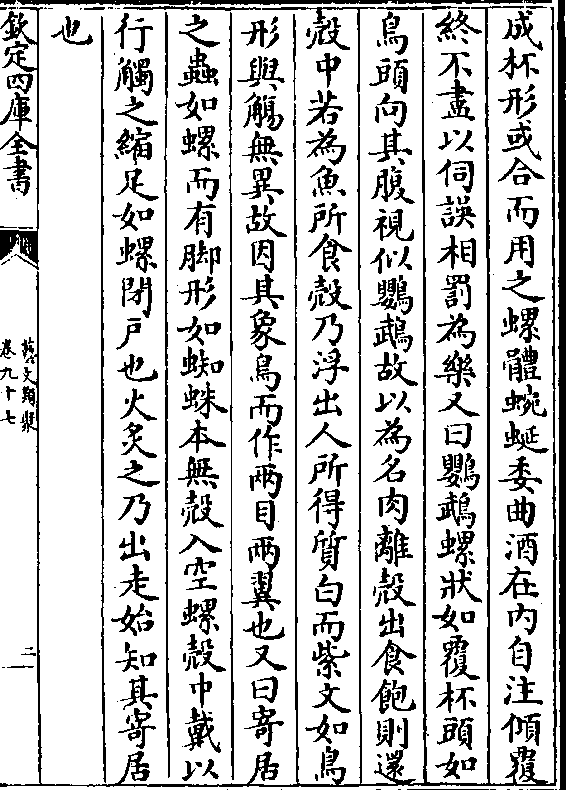 成杯形或合而用之螺體蜿蜒委曲酒在内自注傾覆
終不盡以伺誤相罰為樂又曰鸚鵡螺狀如覆杯頭如
鳥頭向其腹視似鸚鵡故以為名肉離殻出食飽則還
殻中若為魚所食殻乃浮出人所得質白而紫文如鳥
形與觴無異故因其象鳥而作兩目兩翼也又曰寄居
之蟲如螺而有脚形如蜘蛛本無殻入空螺殻中戴以
行觸之縮足如螺閉戶也火炙之乃出走始知其寄居
也
欽定四庫全書
藝文類聚
卷九十七
二